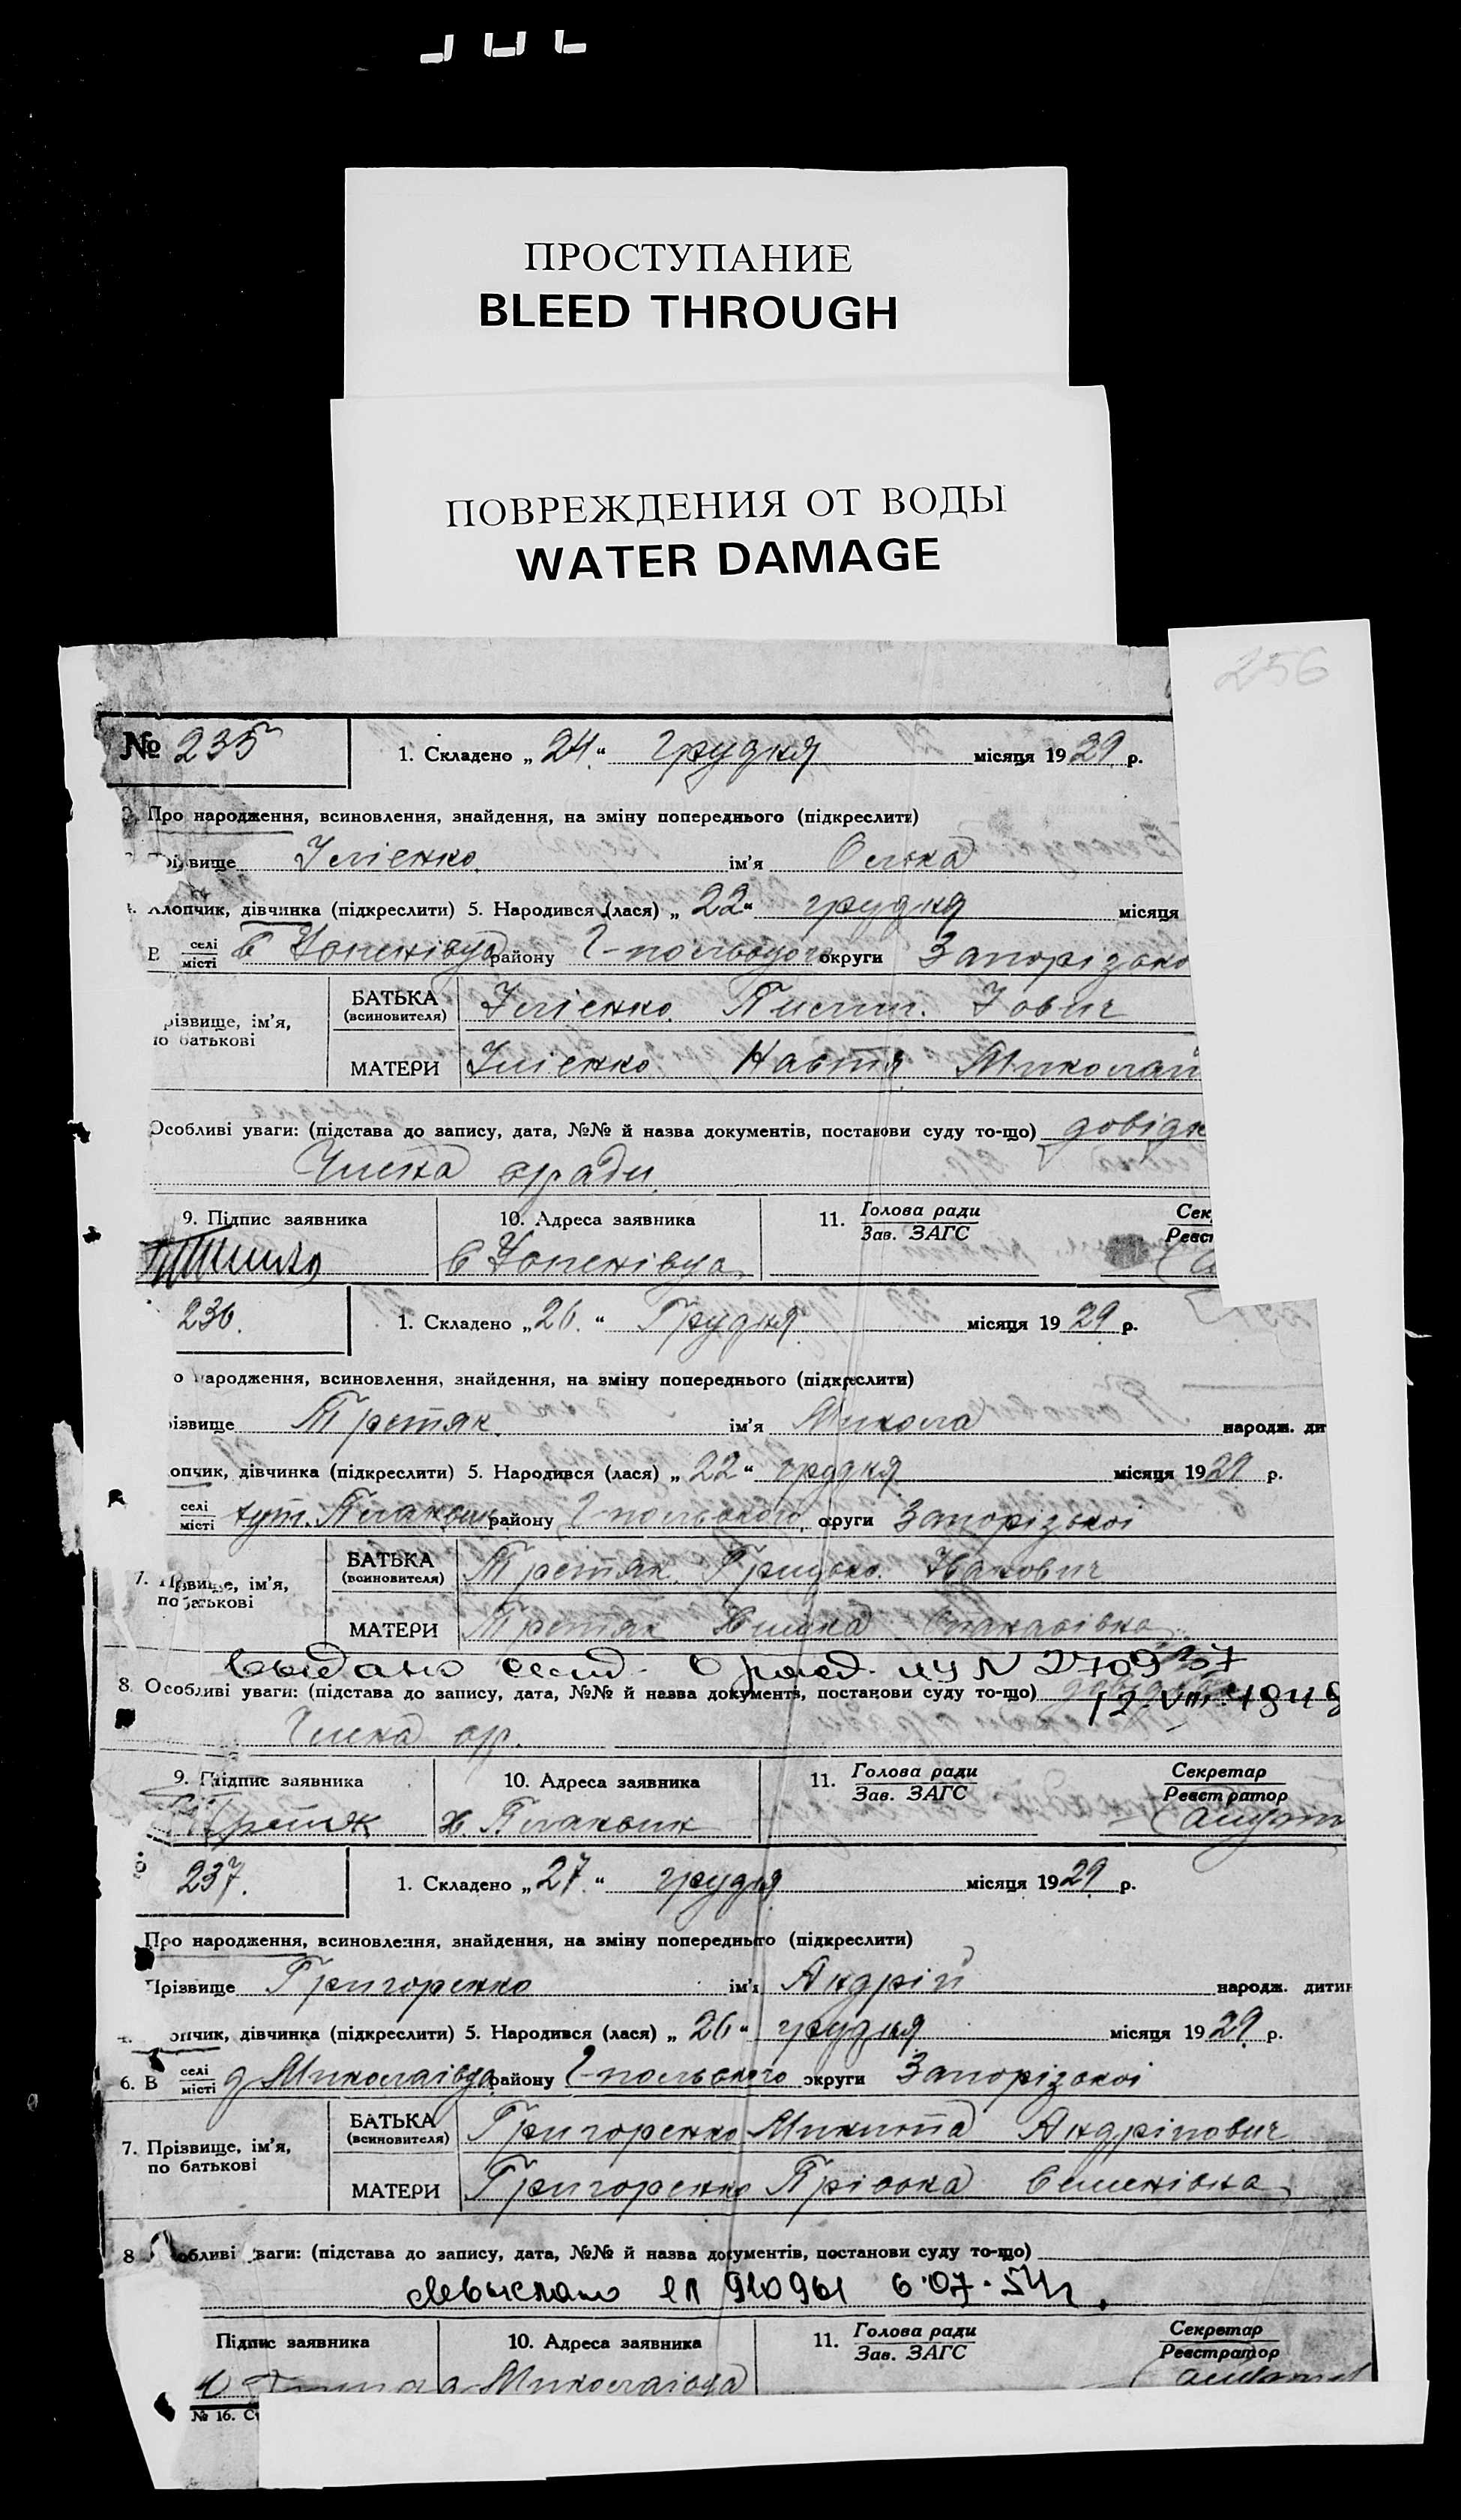 ПРОСТУПАНИЕ
BLEED THROUGH
ПОВРЕЖДЕНИЯ ОТ ВОДЫ
WATER DAMAGE
256
№ 235
1. Складено „ 24 “ грудня місяця 19 29 р.
Про народження, всиновлення, знайдення, на зміну попереднього (підкреслити)
вище Ілієнко ім’я
хлопчик, дівчинка (підкреслити) 5. Народився (лася) „ 22 “ грудня місяця
В селі
місті району округи Запорізько
БАТЬКА
(всиновителя) Ілієнко Пилип Іович
різвище, ім’я,
по батькові
МАТЕРИ Ілієнко Настя Миколаї
Особливі уваги: (підстава до запису, дата, №№ й назва документів, постанови суду то-що) довідк
с/ради
9. Підпис заявника 10. Адреса заявника 11. Голова ради
Зав. ЗАГС Сек
Реєст
236.
1. Складено „ 26. “ Грудня місяця 19 29 р.
о народження, всиновлення, знайдення, на зміну попереднього (підкреслити)
ізвище Третяк ім’я Микола народж. ди
опчик, дівчинка (підкреслити) 5. Народився (лася) „ 22 “ грудня місяця 19 29 р.
селі
місті хут. району Г-польського округи Запорізької
БАТЬКА
(всиновителя) Третяк Грицько Іванович
7. Прізвище, ім’я,
по батькові
МАТЕРИ Третяк Панасівна
выдано свид. о рожд. № 270937
8. Особливі уваги: (підстава до запису, дата, №№ й назва документів, постанови суду то-що)
12.VIII.1948
9. Підпис заявника 10. Адреса заявника 11. Голова ради
Зав. ЗАГС Секретар
Реєстратор
Третяк х.
237.
1. Складено „ 27. “ грудня місяця 19 29 р.
Про народження, всиновлення, знайдення, на зміну попереднього (підкреслити)
Прізвище Григоренко ім’я Андрій народж. дитин
опчик, дівчинка (підкреслити) 5. Народився (лася) „ 26 “ грудня місяця 19 29 р.
6. В селі
місті д Миколаівца району Г-польського округи Запорізької
БАТЬКА
(всиновителя) Григоренко Микита Андрійович
7. Прізвище, ім’я,
по батькові
МАТЕРИ Григоренко Пріська Семенівна
8 обливі уваги: (підстава до запису, дата, №№ й назва документів, постанови суду то-що)
910961 6.07.54 г.
Підпис заявника 10. Адреса заявника 11. Голова ради
Зав. ЗАГС Секретар
Реєстратор
№ 16.